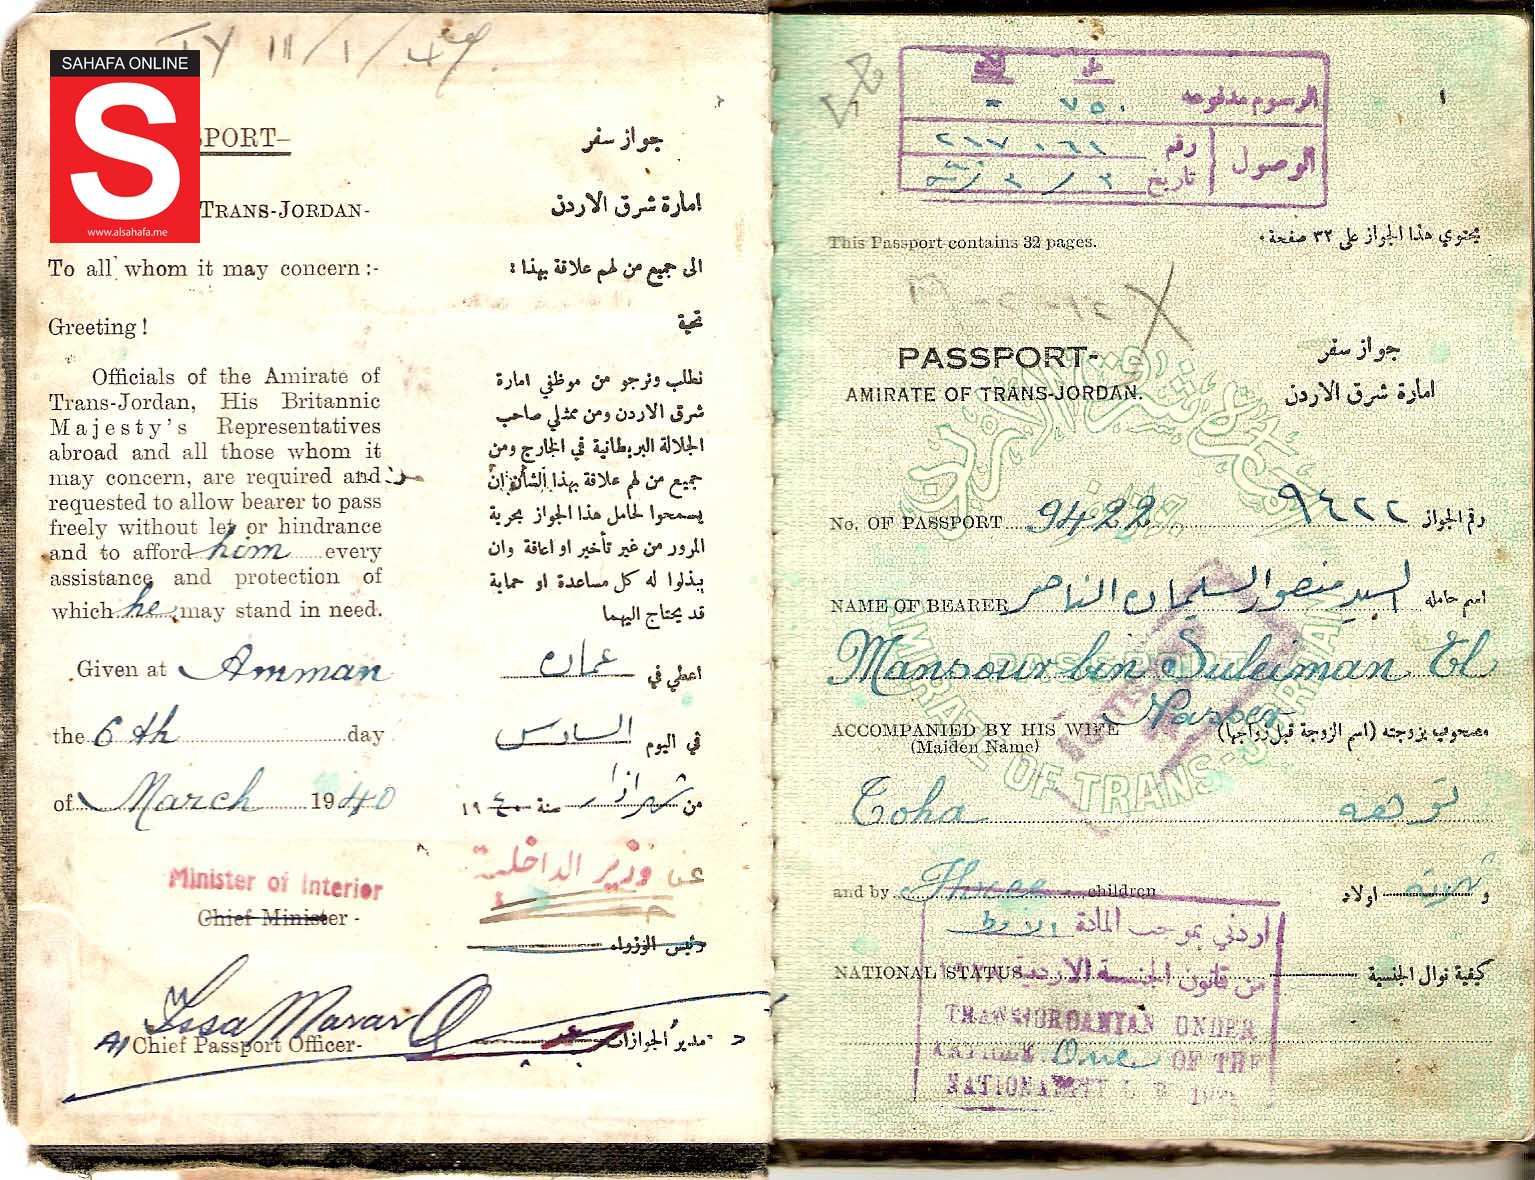 SAHAFA ONLINE
S
www.alsahafa.me
PORT-
جواز سفر
TRANS-JORDAN-
امارة شرق الاردن
To all whom it may concern :-
الى جميع من لهم علاقة بهذا :
Greeting !
تحية
Officials of the Amirate of
Trans-Jordan, His Britannic
Majesty's Representatives
abroad and all those whom it
may concern, are required and
requested to allow bearer to pass
freely without let or hindrance
and to afford him every
assistance and protection of
which he may stand in need.
نطلب ونرجو من موظفي امارة
شرق الاردن ومن ممثلي صاحب
الجلالة البريطانية في الخارج ومن
جميع من لهم علاقة بهذا الشأن ان
يسمحوا لحامل هذا الجواز بحرية
المرور من غير تأخير او اعاقة وان
يبذلوا له كل مساعدة او حماية
قد يحتاج اليهما
Given at Amman
اعطي في عمان
the 6th day
في اليوم السادس
of March 1940
من شهر اذار سنة ١٩٤٠
عن وزير الداخلية
Minister of Interior
Chief Minister -
رئيس الوزراء
Issa Marar
Chief Passport Officer-
مدير الجوازات
الرسوم مدفوعه ٧٥٠ -
الوصول
رقم
تاريخ
١
This Passport contains 32 pages.
يحتوي هذا الجواز على ٣٢ صفحة
PASSPORT-
جواز سفر
AMIRATE OF TRANS-JORDAN.
امارة شرق الاردن
No. OF PASSPORT 9422 ٩٤٢٢ رقم الجواز
NAME OF BEARER السيد منصور السليمان الناصر اسم حامله
Mansour bin Suleiman El
Nasser
ACCOMPANIED BY HIS WIFE
(Maiden Name)
مصحوب بزوجته (اسم الزوجة قبل زواجها)
PASSPORT
AMIRATE OF TRANS-JORDAN
Toha
and by Three children
و ثلاثة اولاد
NATIONAL STATUS
كيفية نوال الجنسية
اردني بموجب المادة الاولى
من قانون الجنسية الاردنية
TRANSJORDANIAN UNDER
ARTICLE One OF THE
NATIONALITY